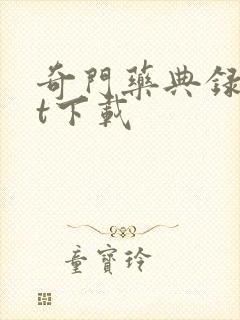 奇門藥典録
t下載
童寶玲